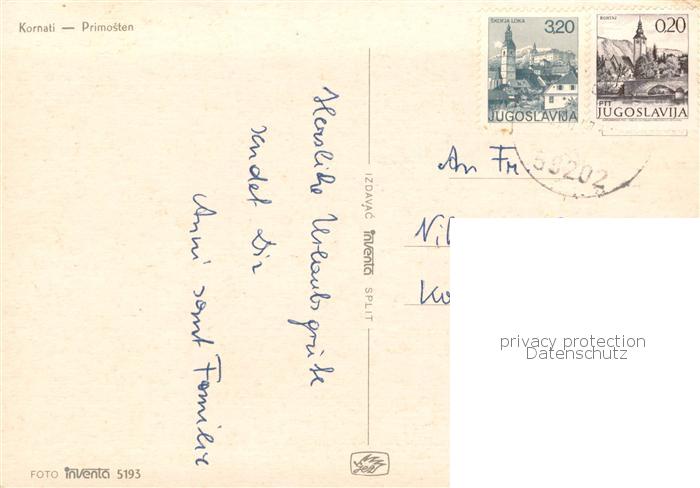 Kornati — Primošten
ŠKOFJA LOKA
3,20
JUGOSLAVIJA
BOHINJ
0,20
PTT
JUGOSLAVIJA
59202
Herzliche Urlaubsgrüße
sendet Dir
Anni samt Familie
IZDAVAČ inventa SPLIT
An Fr
Ni
Ko
privacy protection
Datenschutz
FOTO inventa 5193